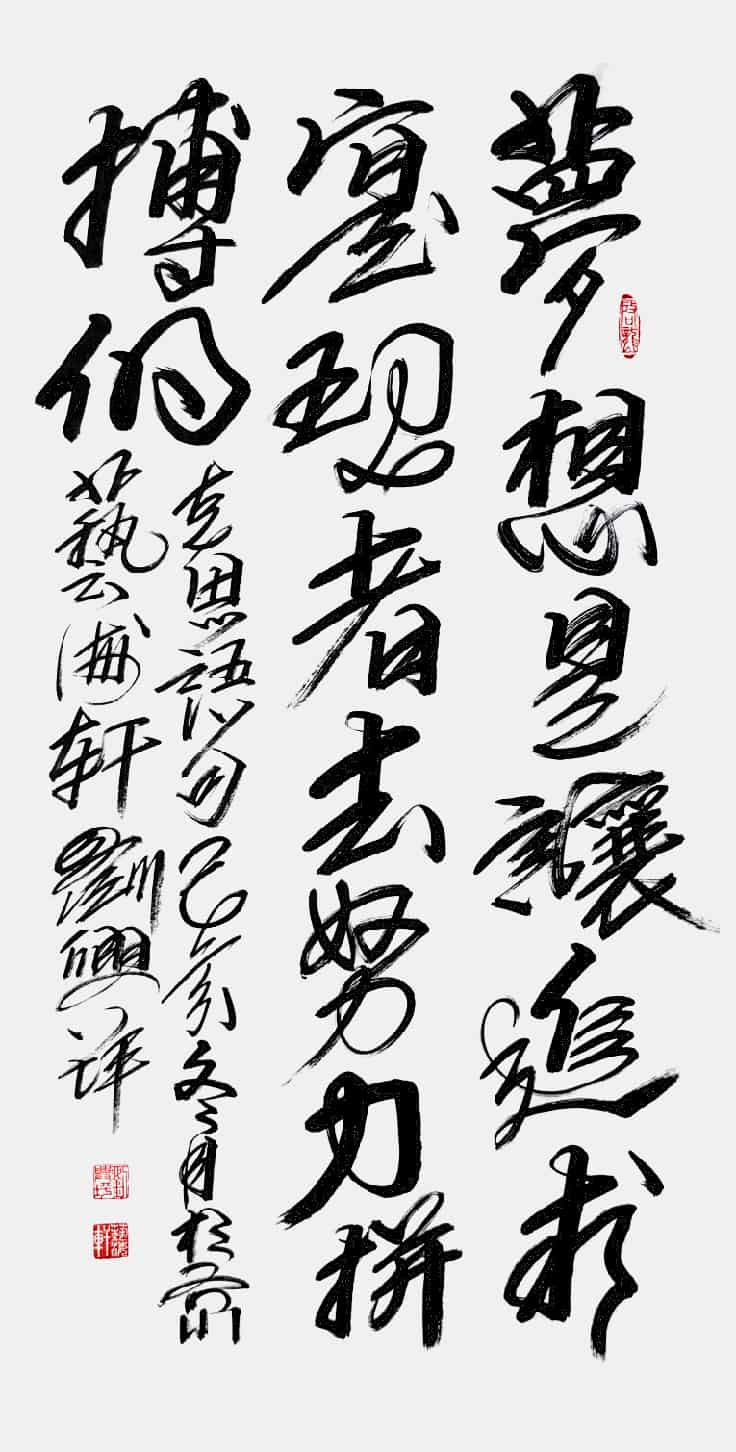 夢想是讓追求
實現者去努力拼
搏的
克思語句己亥冬月於
藝海軒劉興祥